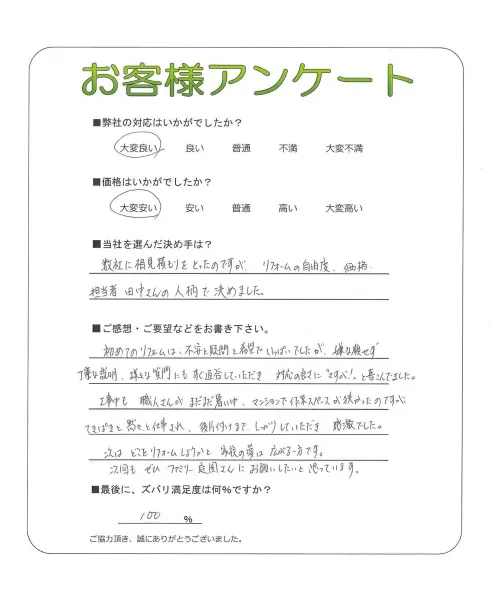 お客様アンケート
■弊社の対応はいかがでしたか？
大変良い 良い 普通 不満 大変不満
■価格はいかがでしたか？
大変安い 安い 普通 高い 大変高い
■当社を選んだ決め手は？
数社に相見積もりをとったのですが、リフォームの自由度、価格、
担当者 田中さんの人柄で決めました。
■ご感想・ご要望などをお書き下さい。
初めてのリフォームは、不安と疑問と希望でいっぱいでしたが、嫌な顔せず
丁寧な説明、様々な質問にもすぐ返答していただき 対応の良さに"すごい!"と喜んでました。
工事中も 職人さんが まだまだ暑い中、マンションで作業スペースが狭かったのですが
てきぱきと黙々と仕事され、後片付けまで しっかりしていただき 感激でした。
次は どこをリフォームしようかと 家族の夢は広がる一方です。
次回も ぜひ ファミリー庭園さんにお願いしたいと思っています。
■最後に、ズバリ満足度は何％ですか？
100 ％
ご協力頂き、誠にありがとうございました。